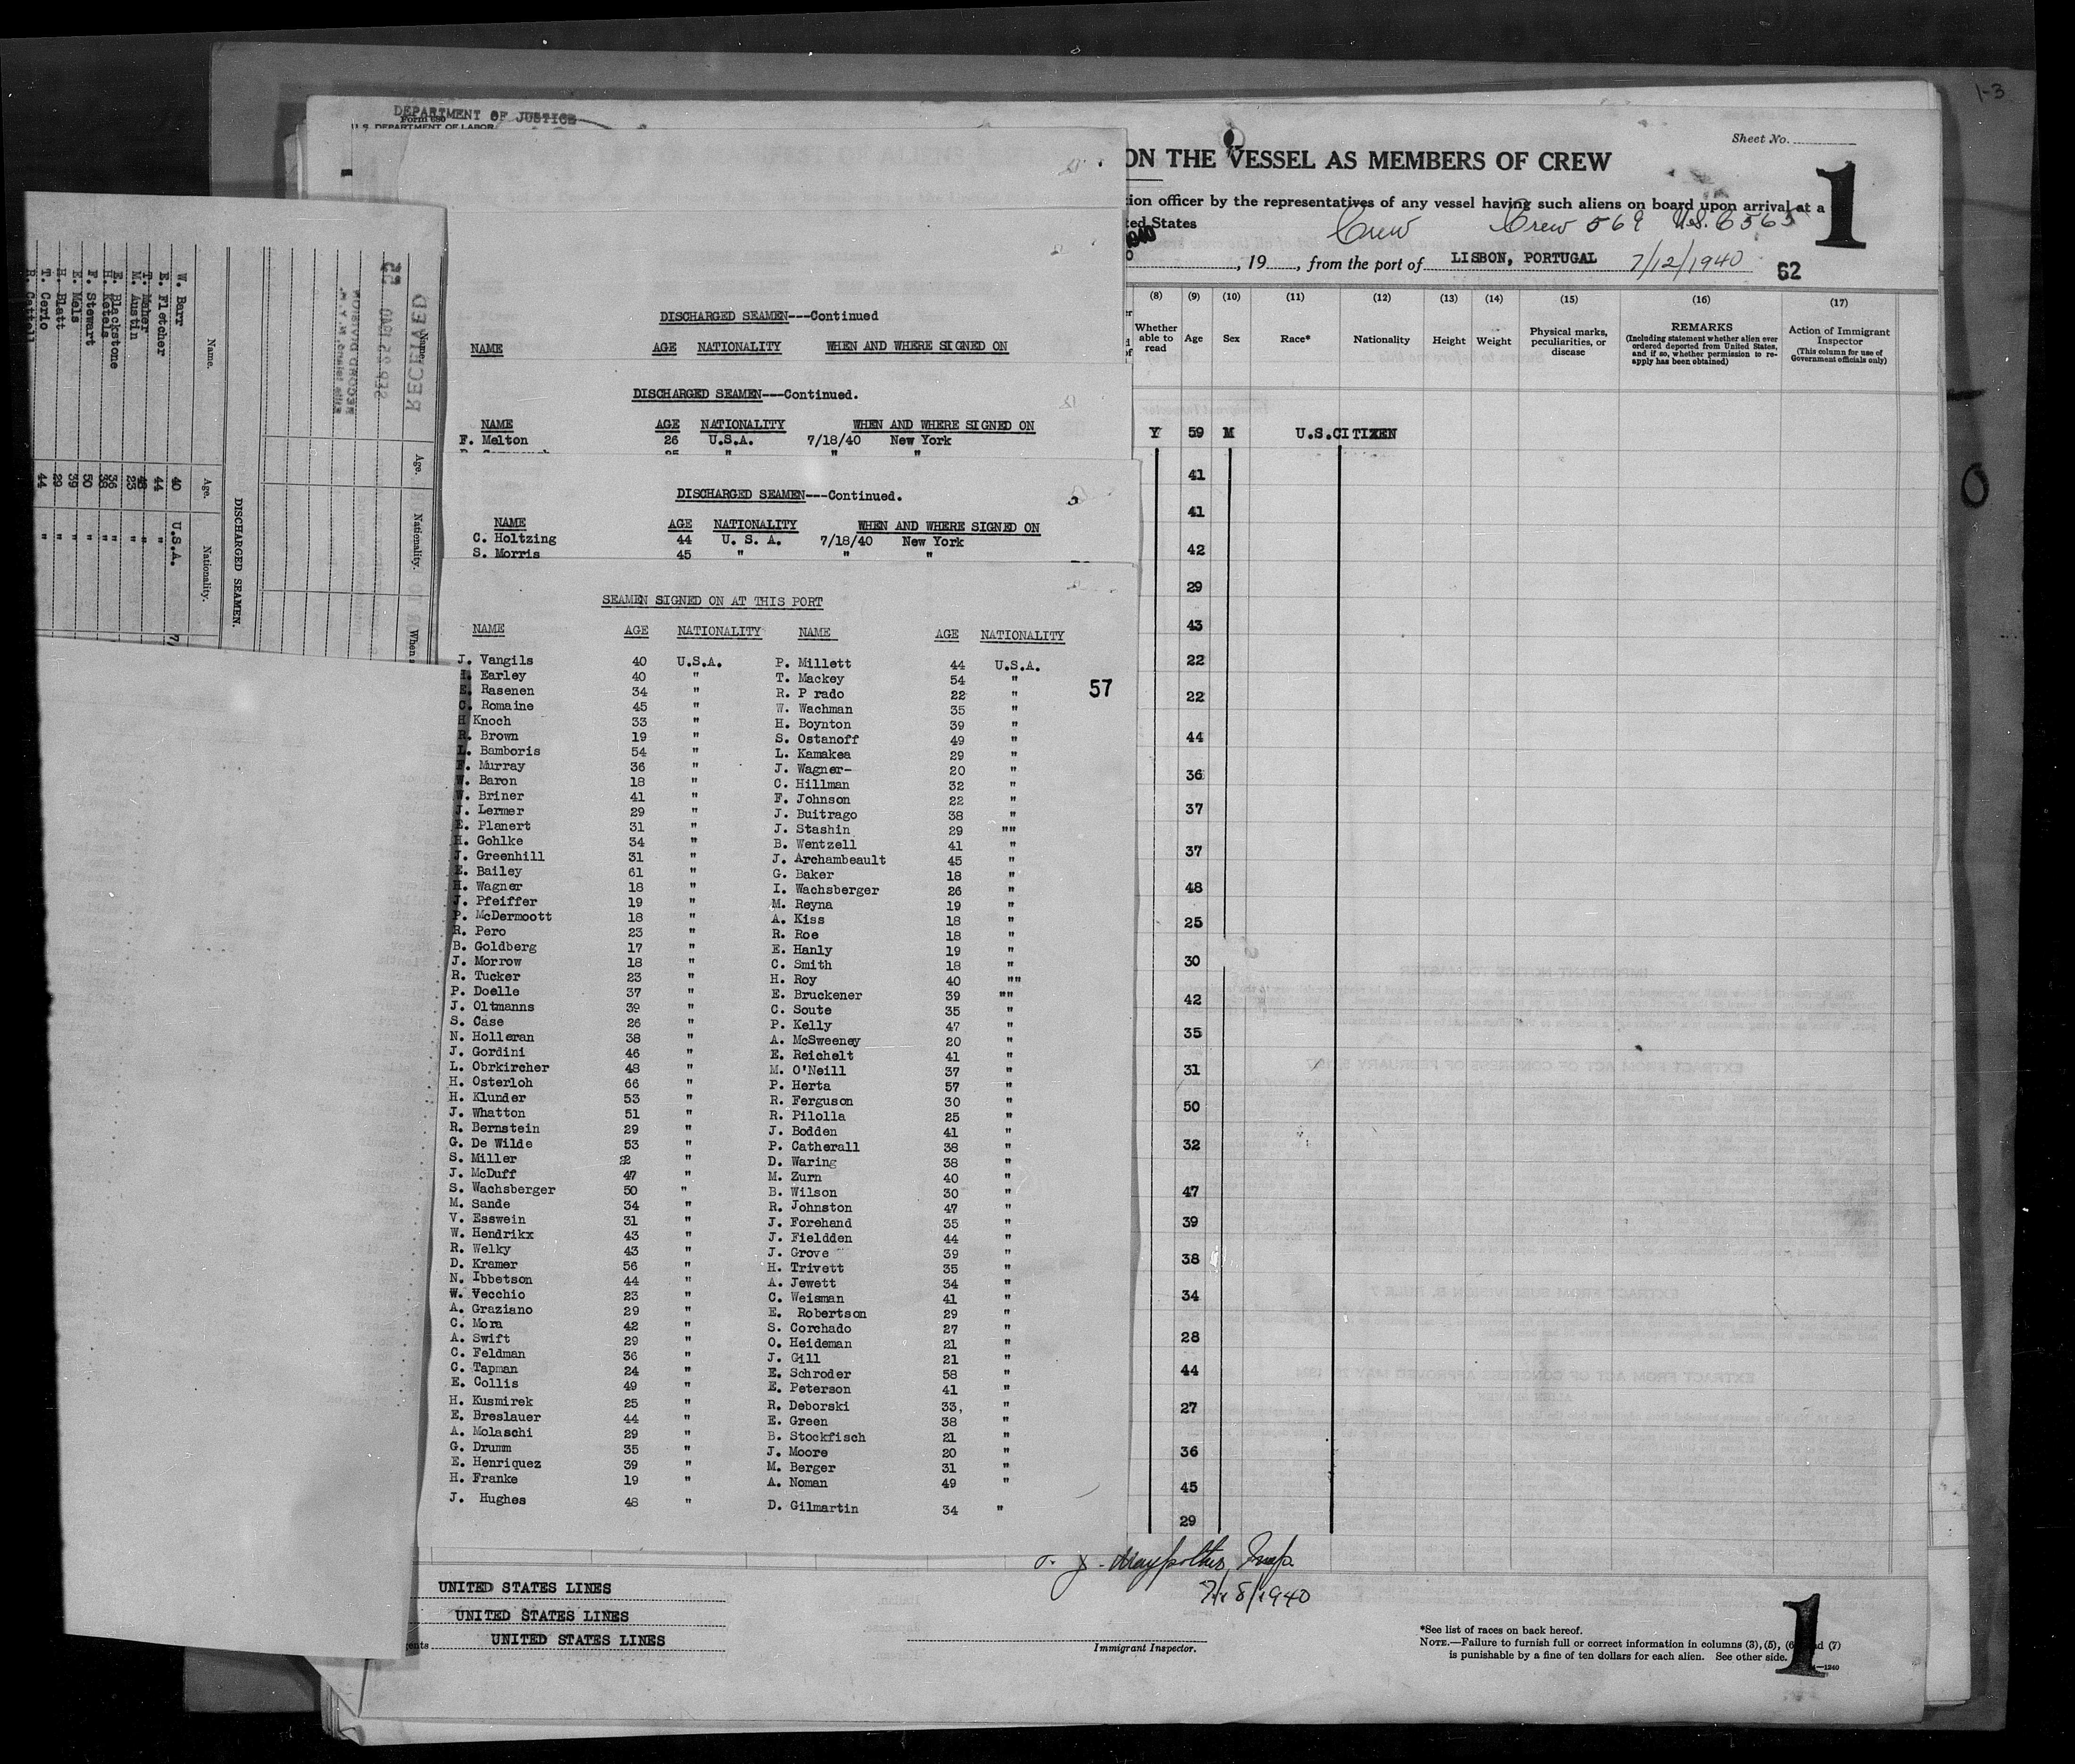 1-3
DEPARTMENT OF JUSTICE
Form 680
U. S. DEPARTMENT OF LABOR
Sheet No.
ON THE VESSEL AS MEMBERS OF CREW
1
tion officer by the representatives of any vessel having such aliens on board upon arrival at a
ted States
Crew Crew 569 U.S. C 565
, 19 , from the port of LISBON, PORTUGAL 7/12/1940
62
(8) (9) (10) (11) (12) (13) (14) (15) (16) (17)
Whether able to read Age Sex Race* Nationality Height Weight Physical marks, peculiarities, or disease REMARKS (Including statement whether alien ever ordered deported from United States, and if so, whether permission to re-apply has been obtained) Action of Immigrant Inspector (This column for use of Government officials only)
Y 59 M U.S.CITIZEN
41
41
42
29
43
22
22
44
36
37
37
48
25
30
42
35
31
50
32
47
39
38
34
28
44
27
36
45
29
RECEIVED
SEP 25 1940
RECORD DIVISION
DISCHARGED SEAMEN.
Name. Age. Nationality.
W. Barr 40 U.S.A. 7
E. Fletcher 44 "
T. Maher "
M. Austin 23 "
E. Blackstone 36 "
H. Ketels 38 "
F. Stewart 50 "
E. Mels 39 "
H. Blatt 29 "
T. Cerio 44 "
Name. Age. Nationality. When
DISCHARGED SEAMEN---Continued
NAME AGE NATIONALITY WHEN AND WHERE SIGNED ON
DISCHARGED SEAMEN---Continued.
NAME AGE NATIONALITY WHEN AND WHERE SIGNED ON
F. Melton 26 U.S.A. 7/18/40 New York
DISCHARGED SEAMEN---Continued.
NAME AGE NATIONALITY WHEN AND WHERE SIGNED ON
C. Holtzing 44 U. S. A. 7/18/40 New York
S. Morris 45 " " "
SEAMEN SIGNED ON AT THIS PORT
NAME AGE NATIONALITY NAME AGE NATIONALITY
J. Vangils 40 U.S.A. P. Millett 44 U.S.A.
H. Earley 40 " T. Mackey 54 "
E. Rasenen 34 " R. P rado 22 "
57
C. Romaine 45 " W. Wachman 35 "
H Knoch 33 " H. Boynton 39 "
R. Brown 19 " S. Ostanoff 49 "
L. Bamboris 54 " L. Kamakea 29 "
F. Murray 36 " J. Wagner- 20 "
W. Baron 18 " C. Hillman 32 "
W. Briner 41 " F. Johnson 22 "
J. Lermer 29 " J. Buitrago 38 "
E. Planert 31 " J. Stashin 29 ""
H. Gohlke 34 " B. Wentzell 41 "
J. Greenhill 31 " J. Archambeault 45 "
E. Bailey 61 " G. Baker 18 "
H. Wagner 18 " I. Wachsberger 26 "
J. Pfeiffer 19 " M. Reyna 19 "
P. McDermoott 18 " A. Kiss 18 "
R. Pero 23 " R. Roe 18 "
B. Goldberg 17 " E. Hanly 19 "
J. Morrow 18 " C. Smith 18 "
R. Tucker 23 " H. Roy 40 ""
P. Doelle 37 " E. Bruckener 39 ""
J. Oltmanns 39 " C. Soute 35 "
S. Case 26 " P. Kelly 47 "
N. Holleran 38 " A. McSweeney 20 "
J. Gordini 46 " E. Reichelt 41 "
L. Obrkircher 48 " M. O'Neill 37 "
H. Osterloh 66 " P. Herta 57 "
H. Klunder 53 " R. Ferguson 30 "
J. Whatton 51 " R. Pilolla 25 "
R. Bernstein 29 " J. Bodden 41 "
G. De Wilde 53 " P. Catherall 38 "
S. Miller " D. Waring 38 "
J. McDuff 47 " M. Zurn 40 "
S. Wachsberger 50 " B. Wilson 30 "
M. Sande 34 " R. Johnston 47 "
V. Esswein 31 " J. Forehand 35 "
W. Hendrikx 43 " J. Fieldden 44 "
R. Welky 43 " J. Grove 39 "
D. Kramer 56 " H. Trivett 35 "
N. Ibbetson 44 " A. Jewett 34 "
W. Vecchio 23 " C. Weisman 41 "
A. Graziano 29 " E. Robertson 29 "
C. Mora 42 " S. Corchado 27 "
A. Swift 29 " O. Heideman 21 "
C. Feldman 36 " J. Gill 21 "
C. Tapman 24 " E. Schroder 58 "
E. Collis 49 " E. Peterson 41 "
H. Kusmirek 25 " R. Deborski 33, "
E. Breslauer 44 " E. Green 38 "
A. Molaschi 29 " B. Stockfisch 21 "
G. Drumm 35 " J. Moore 20 "
E. Henriquez 39 " M. Berger 31 "
H. Franke 19 " A. Noman 49 "
J. Hughes 48 " D. Gilmartin 34 "
UNITED STATES LINES
UNITED STATES LINES
ents UNITED STATES LINES
Insp.
1940
Immigrant Inspector.
*See list of races on back hereof.
NOTE.—Failure to furnish full or correct information in columns (3), (5), (6 nd (7)
is punishable by a fine of ten dollars for each alien. See other side.
—1240
1